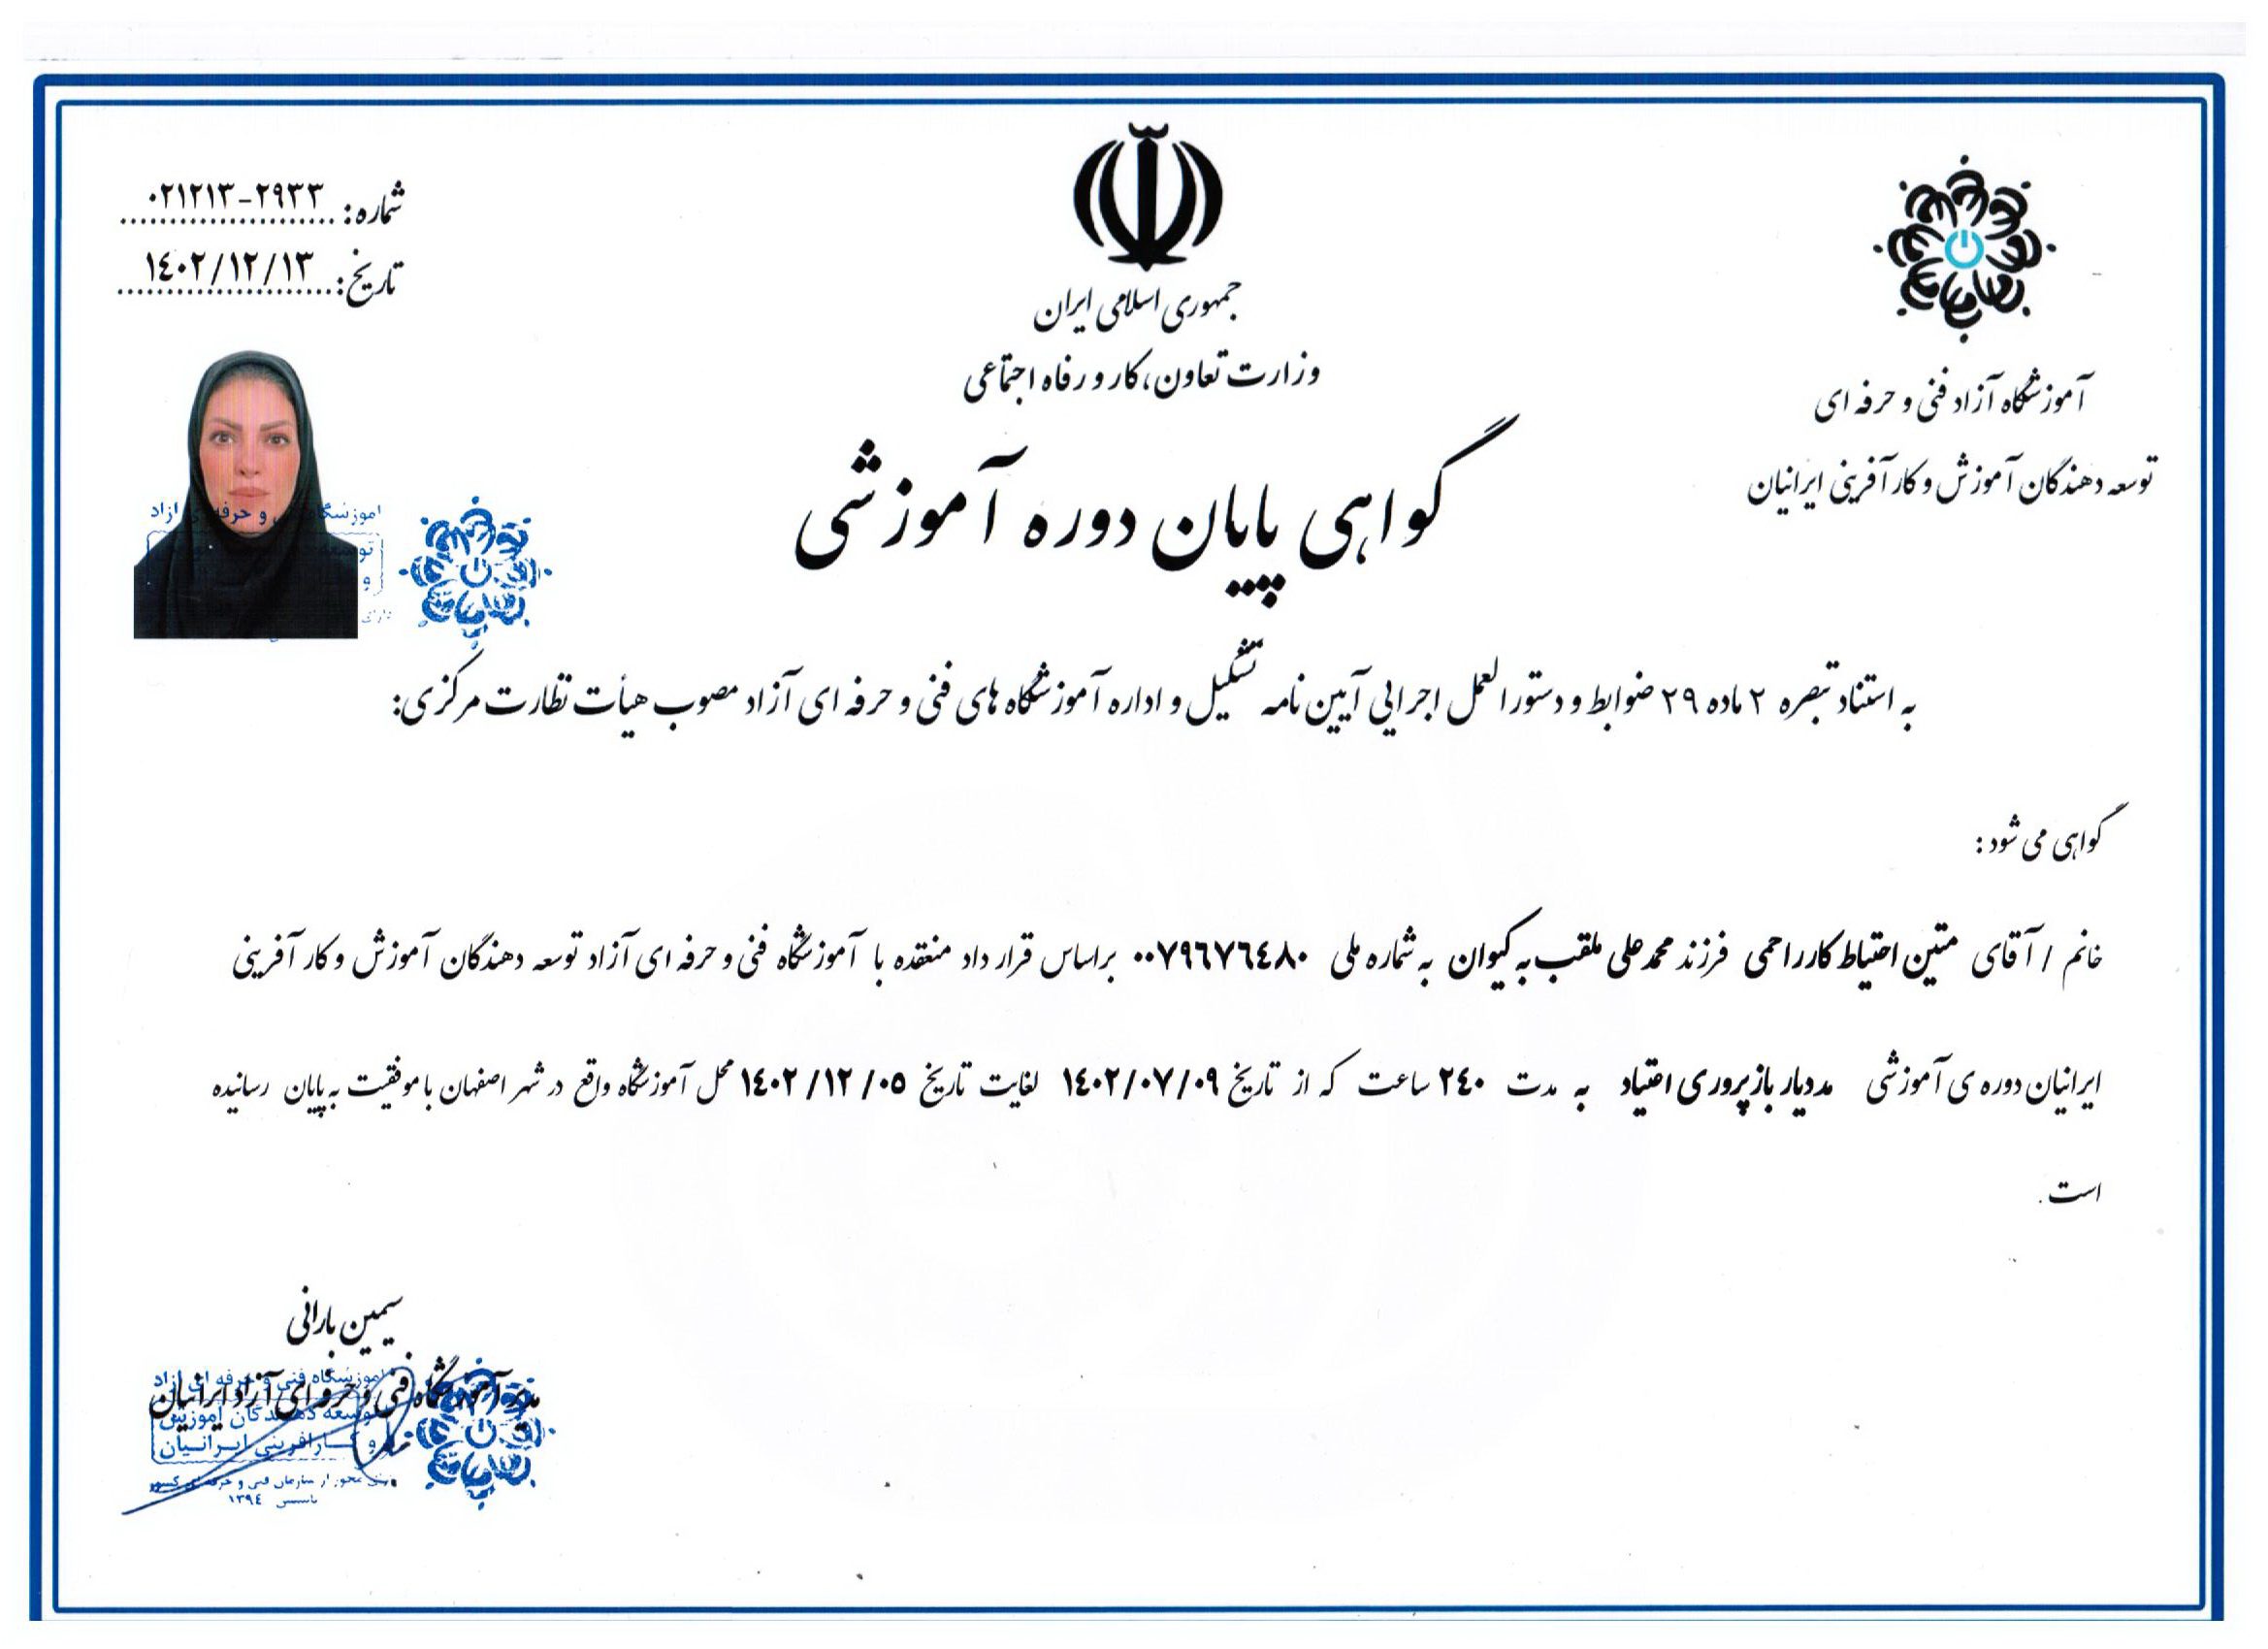 شماره: ۰۲۱۲۱۳-۲۹۳۳
تاریخ: ۱۴۰۲/۱۲/۱۳
جمهوری اسلامی ایران
وزارت تعاون، کار و رفاه اجتماعی
آموزشگاه آزاد فنی و حرفه ای
توسعه دهندگان آموزش و کارآفرینی ایرانیان
گواهی پایان دوره آموزشی
به استناد تبصره ۲ ماده ۲۹ ضوابط و دستورالعمل اجرایی آیین نامه تشکیل و اداره آموزشگاه های فنی و حرفه ای آزاد مصوب هیأت نظارت مرکزی:
گواهی می شود:
خانم / آقای متین احتیاط کار راحمی فرزند محمد علی ملقب به کیوان به شماره ملی ۰۰۷۹۶۷۶۴۸۰ براساس قرار داد منعقده با آموزشگاه فنی و حرفه ای آزاد توسعه دهندگان آموزش و کار آفرینی
ایرانیان دوره ی آموزشی مددیار بازپروری اعتیاد به مدت ۲۴۰ ساعت که از تاریخ ۱۴۰۲/۰۷/۰۹ لغایت تاریخ ۱۴۰۲/۱۲/۰۵ محل آموزشگاه واقع در شهر اصفهان با موفقیت به پایان رسانیده
است.
سیمین بارانی
مدیر آموزشگاه فنی و حرفه ای آزاد ایرانیان
آموزشگاه فنی و حرفه ای آزاد
توسعه دهندگان آموزش
و کارآفرینی ایرانیان
تاسیس ۱۳۹۴